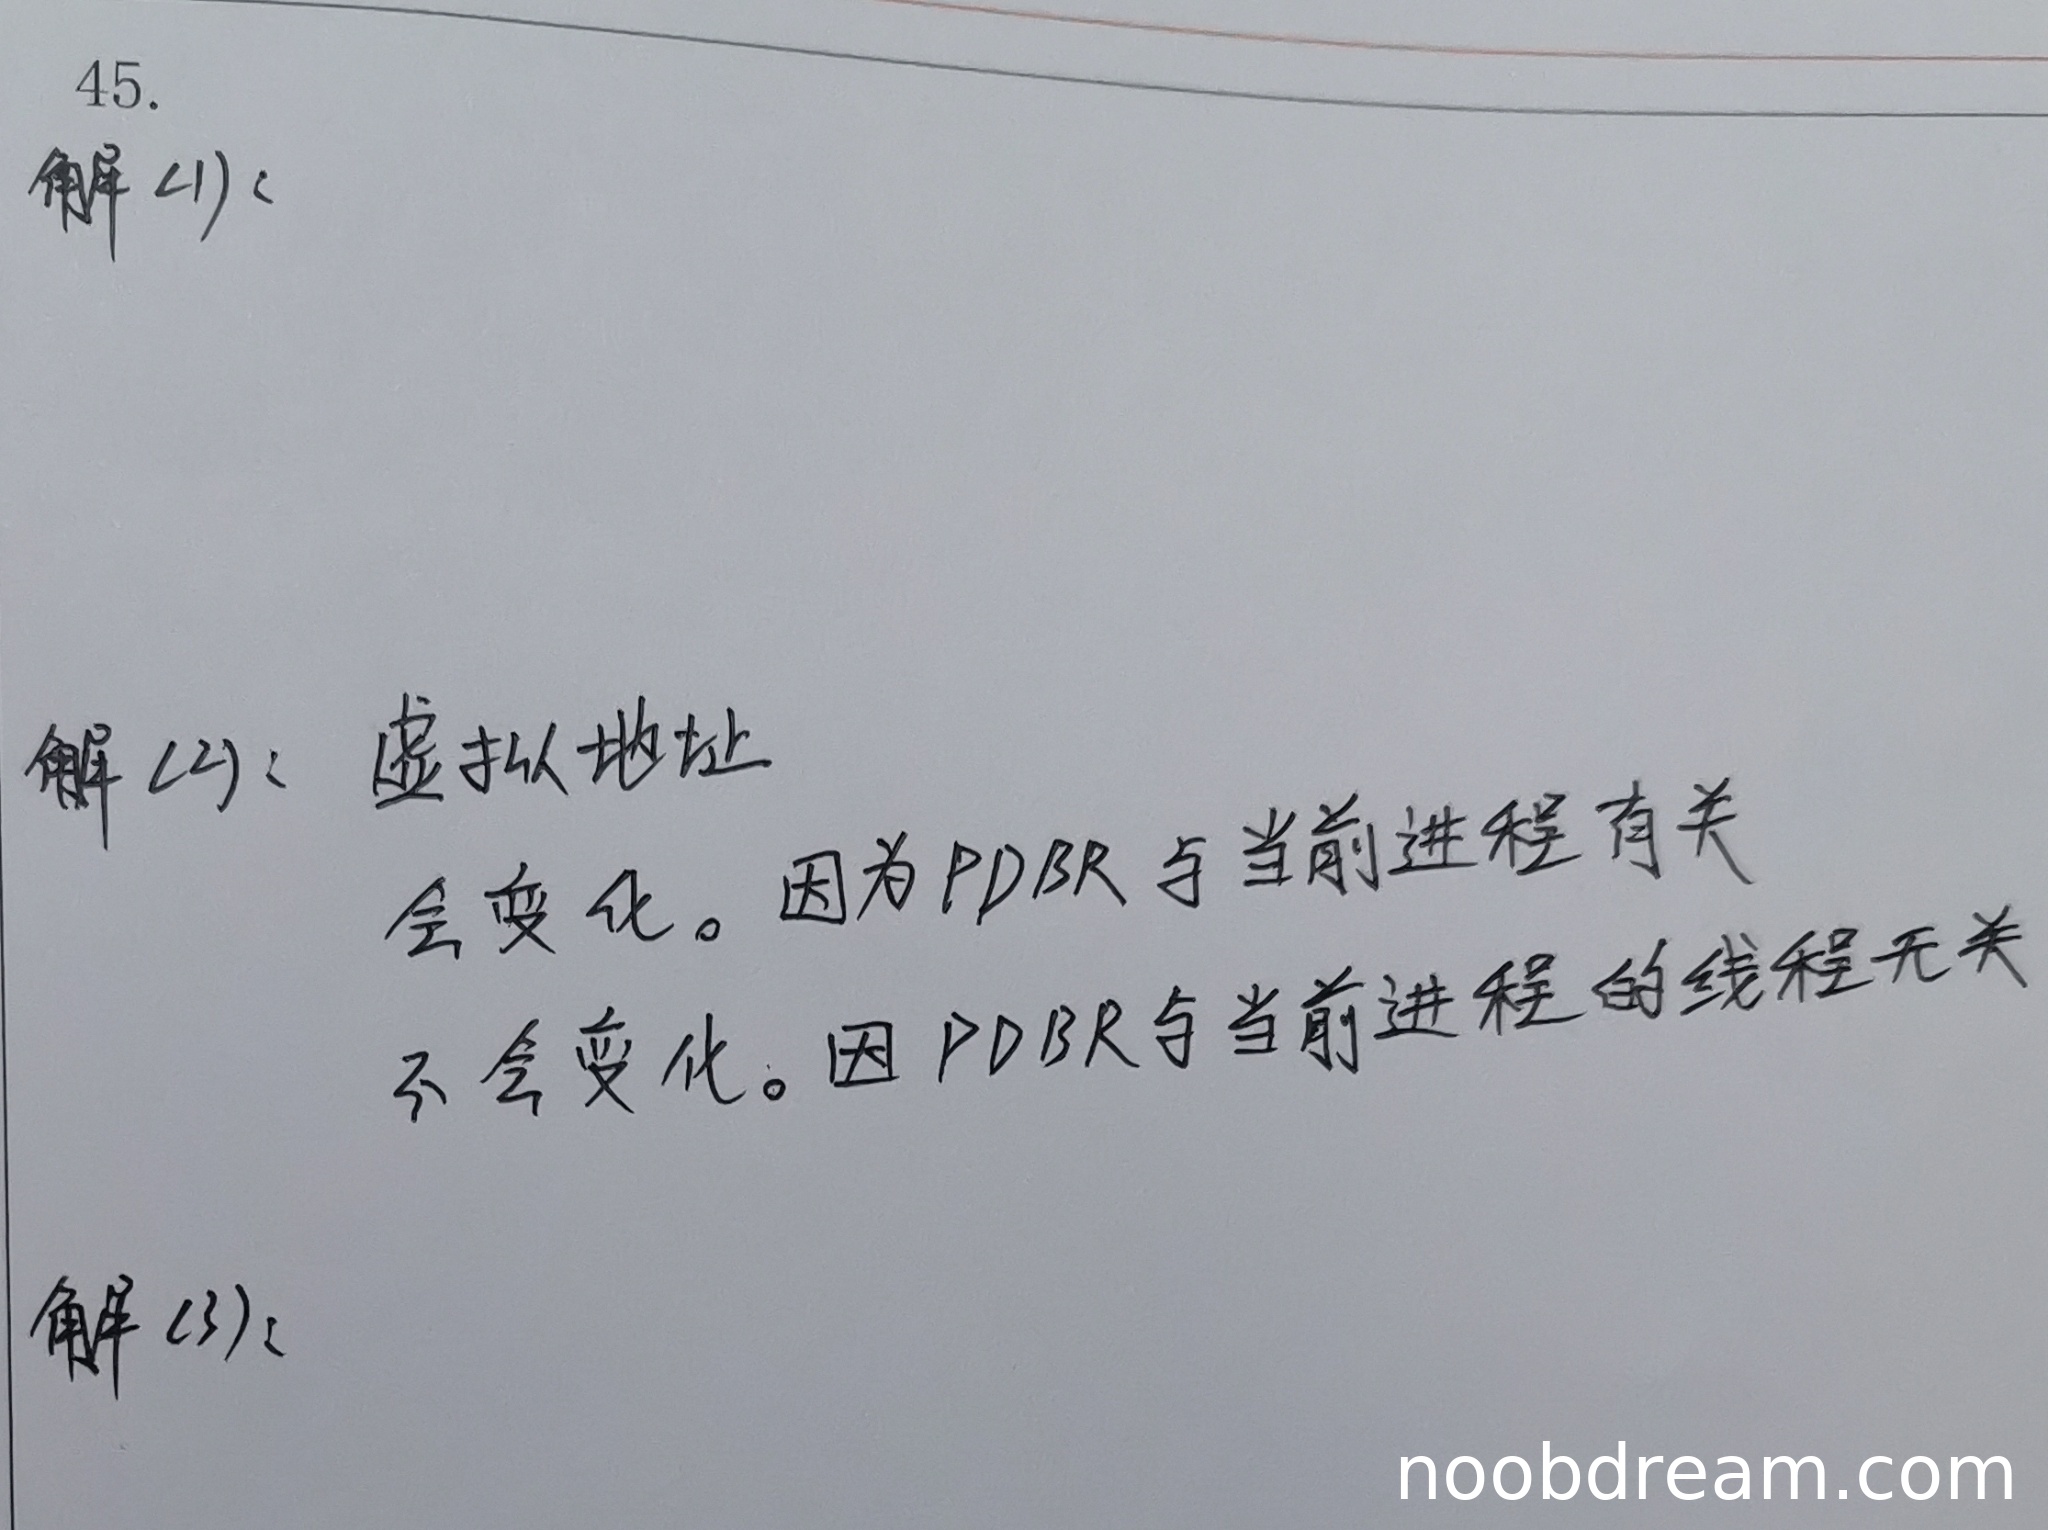 45.
解(1):
解(2): 虚拟地址
会变化。因为PDBR与当前进程有关
不会变化。因PDBR与当前进程的线程无关
解(3):
noobdream.com